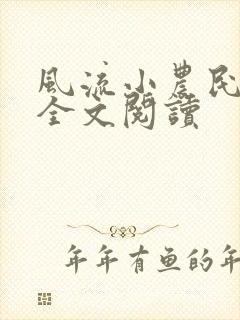 風流小農民
全文閱讀
年年有鱼的年